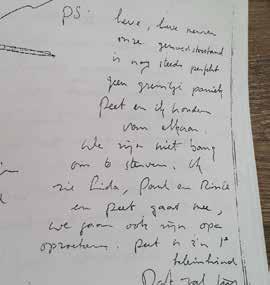 PS. lieve, lieve neven
onze gemoedstoestand
is nog steeds perfekt
geen greintje paniek
Peet en ik houden
van elkaar.
We zijn niet bang
om te sterven. Ik
zie Lida, Paul en Rinie
en Peet gaat mee,
we gaan ook zijn opa
opzoeken. Peet is z'n 1e
kleinkind
Dat zal